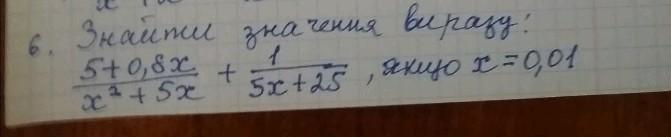 6. Знайти значення виразу:
(5+0,8x)/(x² + 5x) + 1/(5x+25), якщо x = 0,01